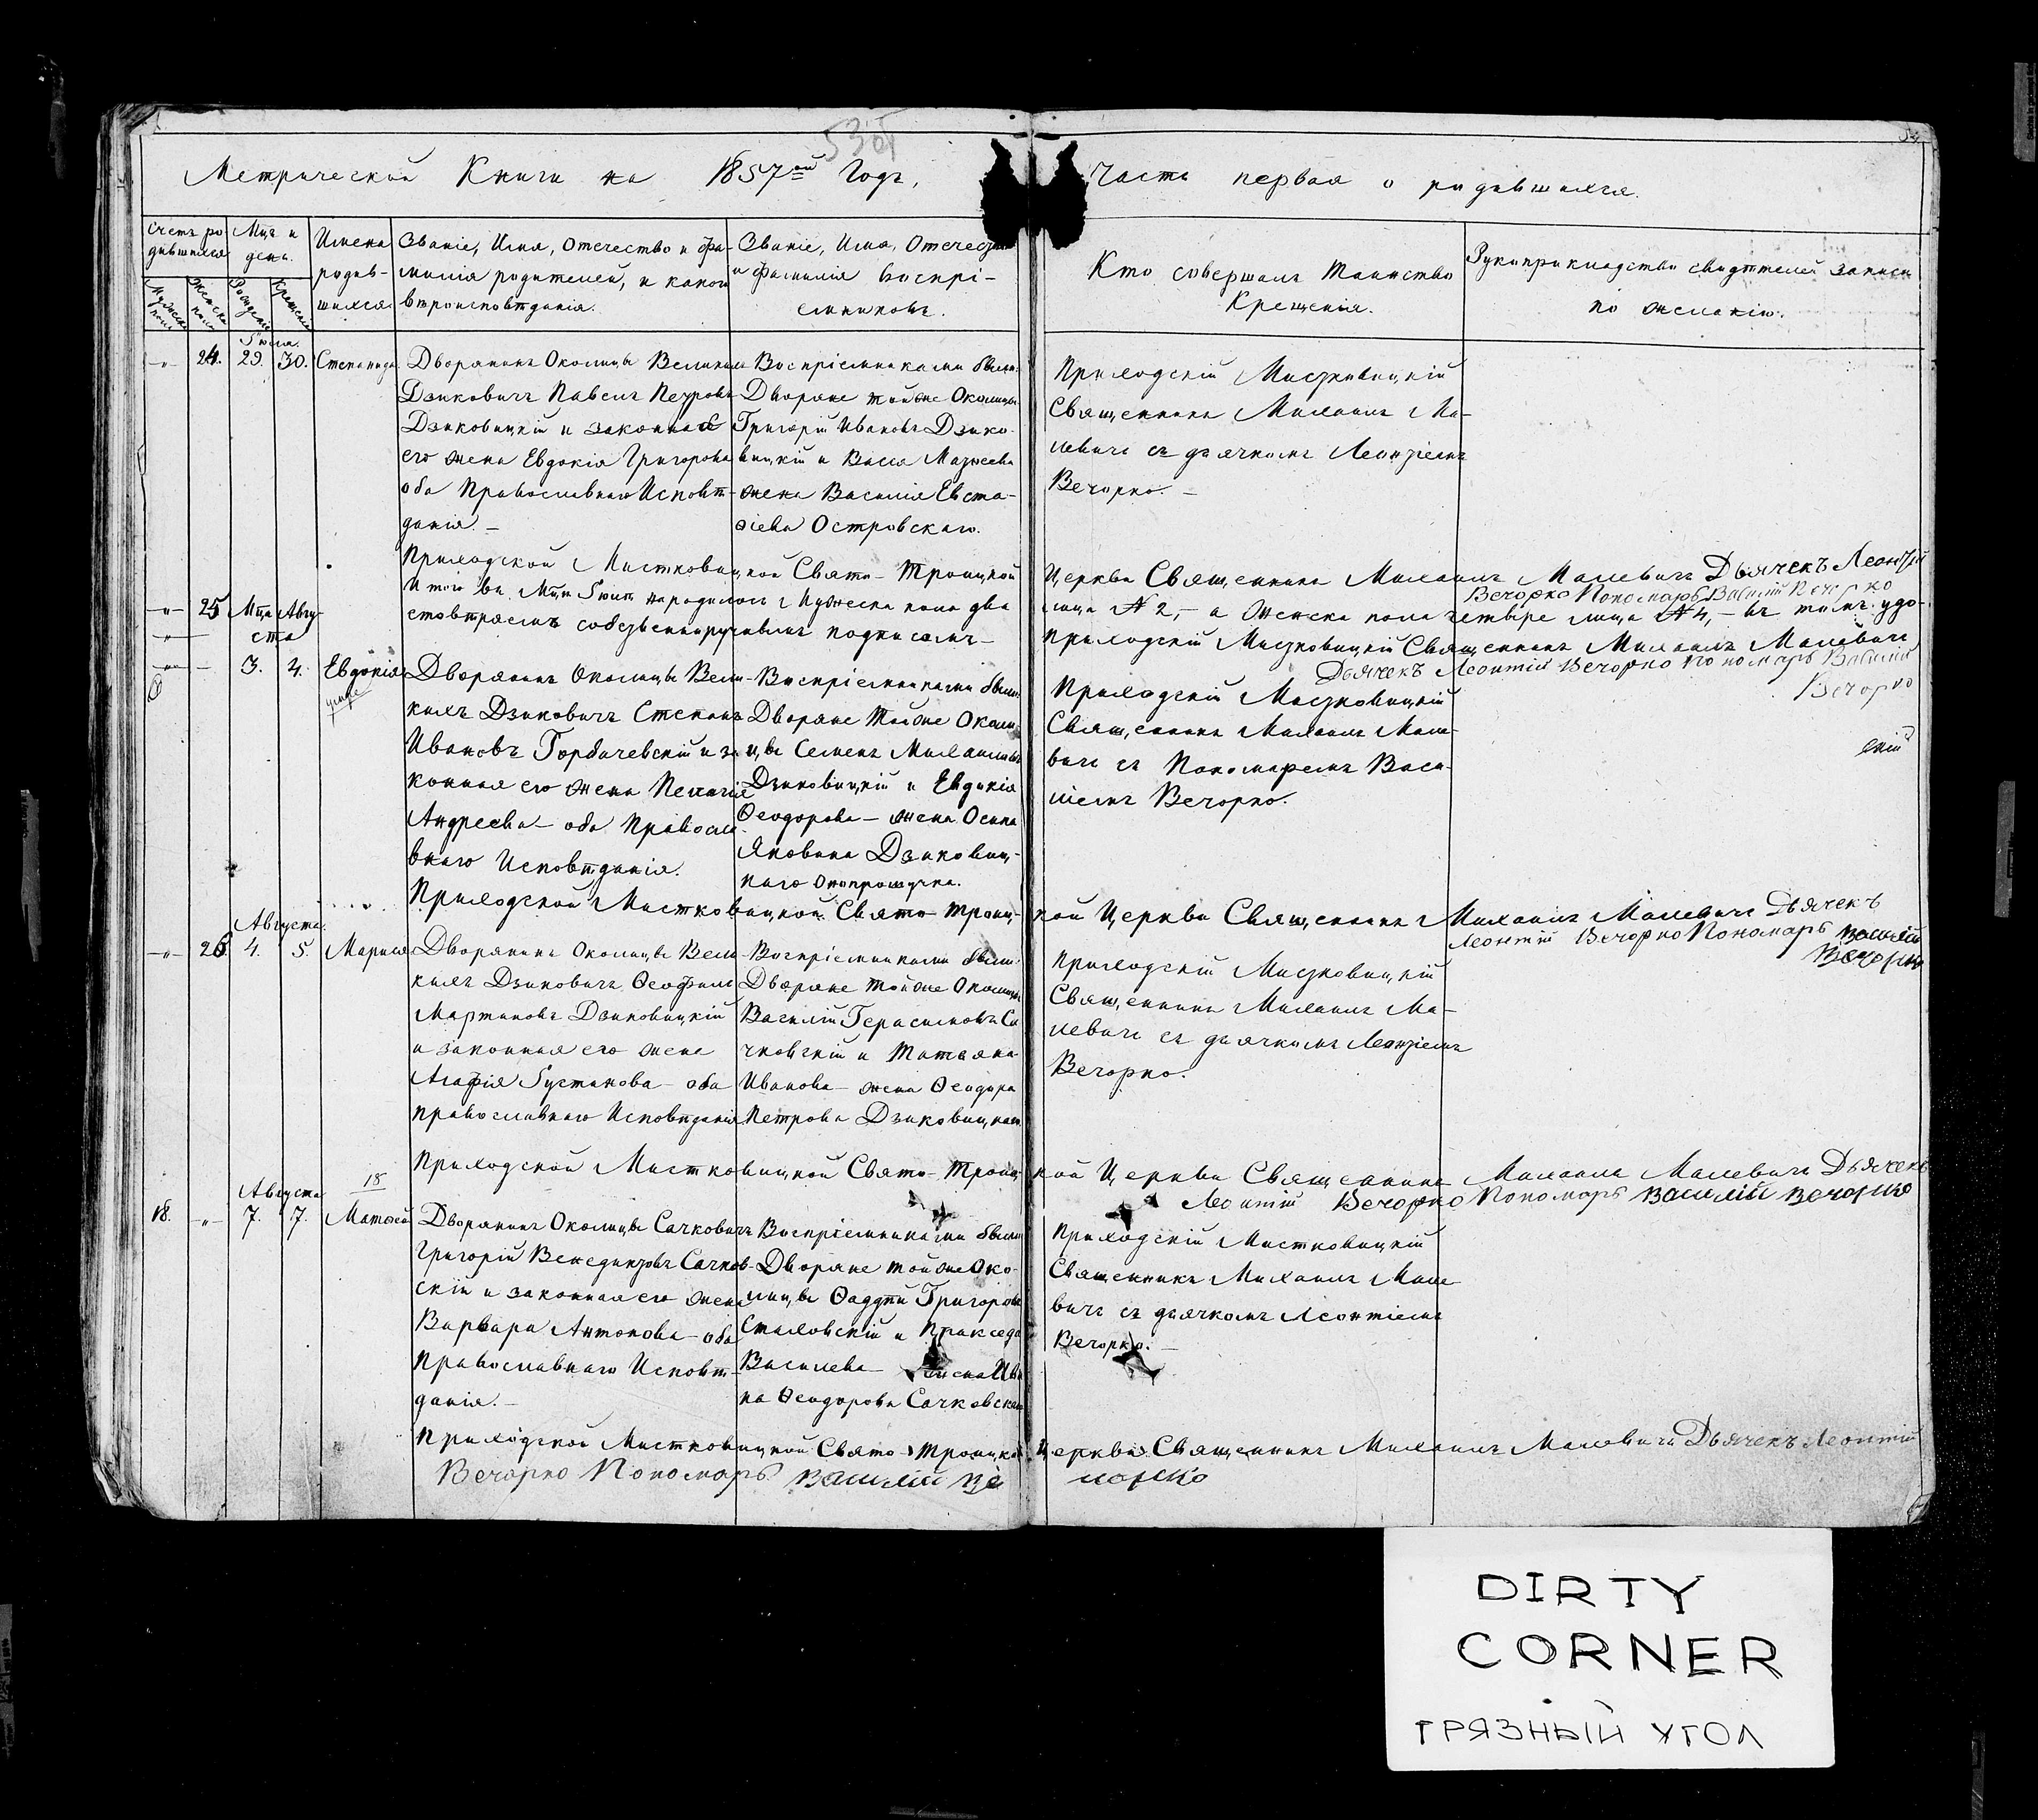 Метрической Книги на 1857ой Годъ,
Часть первая о родившихся.
Счетъ ро
дившихся
Мужеска
пола
Женска
пола
Мцъ и
день.
Рожденія
Крещенія
Имена
родив-
шихся.
Званіе, Имя, Отечество и фа-
милія родителей, и какого
вѣроисповѣданія.
Званіе, Имя, Отечество
и фамилія воспрі-
емниковъ.
Кто совершалъ Таинство
Крещенія.
Рукоприкладство свидѣтелей записи
по желанію.
24. 29. 30. Степанида
Дворянинъ Околицы Великихъ
Дзиковичъ Павелъ Петровъ
Дзиковицкій и законная
его жена Евдокія Григорова
оба Православнаго Исповѣ-
данія.–
Воспріемниками были:
Дворяне той же Околицы
Григорій Ивановъ Дзико-
вицкій и Васса Матѳеева
жена Василія Евста-
ѳіева Островскаго.
Приходскій Мистковицкій
Священникъ Михаилъ Ма-
левичъ съ дьячкомъ Леонтіемъ
Вечорко.–
Приходской Мистковицкой Свято-Троицкой Церкви Священникъ Михаилъ Малевичъ Дьячекъ Леонтій
Вечорко Пономарь Василій Вечорко
Итого въ Мцѣ Іюлѣ народилось Мужеска пола два лица № 2,– а Женска пола четыре лица № 4,– въ томъ удо-
стовѣряемъ собственноручнымъ подписомъ– Приходскій Мистковицкій Священникъ Михаилъ Малевичъ
Дьячекъ Леонтій Вечорко Пономарь Василій
Вечорко
25 Мца Авгу-
ста
3. 4. Евдокія
Дворянинъ Околицы Вели-
кихъ Дзиковичъ Степанъ
Ивановъ Горбачевскій и за-
конная его жена Пелагія
Андреева– оба Правосла-
внаго Исповѣданія.
Воспріемниками были:
Дворяне той же Околи-
цы Семенъ Михаиловъ
Дзиковицкій и Евдокія
Ѳеодорова– жена Осипа
Яковина Дзиковиц-
каго
Приходскій Мистковицкій
Священникъ Михаилъ Мале-
вичъ съ Пономаремъ Васи-
ліемъ Вечорко.
Приходской Мистковицкой Свято-Троиц-кой Церкви Священникъ Михаилъ Малевичъ Дьячекъ
Леонтій Вечорко Пономарь Василій
Вечорко
Августа
26. 4. 5. Марія
Дворянинъ Околицы Вели-
кихъ Дзиковичъ Ѳеофилъ
Мартиновъ Дзиковицкій
и законная его жена
Агафія Густинова– оба
Православнаго Исповѣданія
Воспріемниками были:
Дворяне той же Околицы
Василій Герасимовъ Са-
чковскій и Татьяна
Иванова– жена Ѳеодора
Петрова Дзиковицкаго
Приходскій Мистковицкій
Священникъ Михаилъ Ма-
левичъ съ дьячкомъ Леонтіемъ
Вечорко.
Приходской Мистковицкой Свято-Троиц-кой Церкви Священникъ Михаилъ Малевичъ Дьячекъ
Леонтій Вечорко Пономарь Василій Вечорко
Августа 18
18. 7. 7. Матѳей
Дворянинъ Околицы Сачковичъ
Григорій Венедиктовъ Сачков-
скій и законная его жена
Варвара Антонова– оба
Православнаго Исповѣ-
данія.–
Воспріемниками были
Дворяне той же Око-
лицы Ѳаддей Григоровъ
Стаховскій и Пракседа
Василева– жена Ива
на Ѳеодорова Сачковскаго
Приходскій Мистковицкій
Священникъ Михаилъ Мале-
вичъ съ дьячкомъ Леонтіемъ
Вечорко.–
Приходской Мистковицкой Свято-Троицкой Церкви Священникъ Михаилъ Малевичъ Дьячекъ Леонтій
Вечорко Пономарь Василій Вечорко
DIRTY
CORNER
ГРЯЗНЫЙ УГОЛ